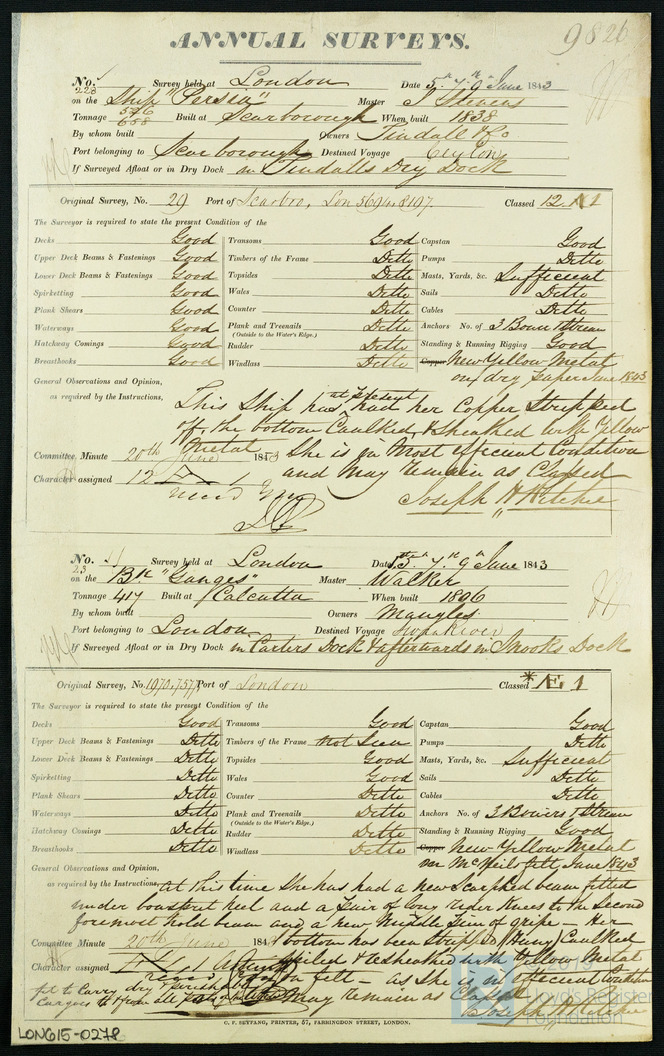 ANNUAL SURVEYS.
9826
No. 228 Survey held at London Date 5th 7th 9th June 1843
on the Ship "Persia" Master J Stevens
Tonnage 546 688 Built at Scarborough When built 1838
By whom built Owners Tindall & Co
Port belonging to Scarborough Destined Voyage Ceylon
If Surveyed Afloat or in Dry Dock in Tindalls Dry Dock
Original Survey, No. 29 Port of Scarbro, Lon 5694. 8197. Classed 12. A 1
The Surveyor is required to state the present Condition of the
Decks Good Transoms Good Capstan Good
Upper Deck Beams & Fastenings Good Timbers of the Frame Ditto Pumps Ditto
Lower Deck Beams & Fastenings Good Topsides Ditto Masts, Yards, &c. Sufficient
Spirketting Good Wales Ditto Sails Ditto
Plank Shears Good Counter Ditto Cables Ditto
Waterways Good Plank and Treenails Ditto Anchors No. of 3 Bower 1 Stream
(Outside to the Water's Edge.)
Hatchway Comings Good Rudder Ditto Standing & Running Rigging Good
Breasthooks Good Windlass Ditto Copper New Yellow Metal
on dry paper June 1843
General Observations and Opinion,
as required by the Instructions, This Ship has at present had her Copper Stripped
off, the bottom Caulked, & sheathed with Yellow
Metal She is in Most efficient Condition
Committee, Minute 20th June 1843 and may remain as Classed
Character assigned 12 A 1 Joseph H Ritchie
No. 23 Survey held at London Date 5th 7th 9th June 1843
on the Bk "Ganges" Master Walker
Tonnage 417 Built at Calcutta When built 1806
By whom built Owners Mangles
Port belonging to London Destined Voyage
If Surveyed Afloat or in Dry Dock in Carters Dock & afterwards in Snooks Dock
Original Survey, No. 1970. 7577 Port of London Classed *Æ 1
The Surveyor is required to state the present Condition of the
Decks Good Transoms Good Capstan Good
Upper Deck Beams & Fastenings Ditto Timbers of the Frame not Seen Pumps Ditto
Lower Deck Beams & Fastenings Ditto Topsides Good Masts, Yards, &c. Sufficient
Spirketting Ditto Wales Good Sails Ditto
Plank Shears Ditto Counter Ditto Cables Ditto
Waterways Ditto Plank and Treenails Ditto Anchors No. of 3 Bowers 1 Stream
(Outside to the Water's Edge.)
Hatchway Comings Ditto Rudder Ditto Standing & Running Rigging Good
Breasthooks Ditto Windlass Ditto Copper New Yellow Metal
over McNeils felt, June 1843
General Observations and Opinion,
as required by the Instructions, at this time She has had a new Scarphed beam fitted
under bowsprit heel and a Pair of long rider Knees to the Second
foremost hold beam and a new Middle Piece of gripe – Her
Committee Minute 20th June 184 bottom has been Stripped Caulked
Character assigned & resheathed with Yellow Metal
felt – as She is in efficient Condition
fit to Carry dry & perishable
Cargoes to & from all parts of the World may remain as Classed
Joseph H Ritchie
© 2019
Lloyd's Register
Foundation
LON615-0278
C. F. SEYFANG, PRINTER, 57, FARRINGDON STREET, LONDON.